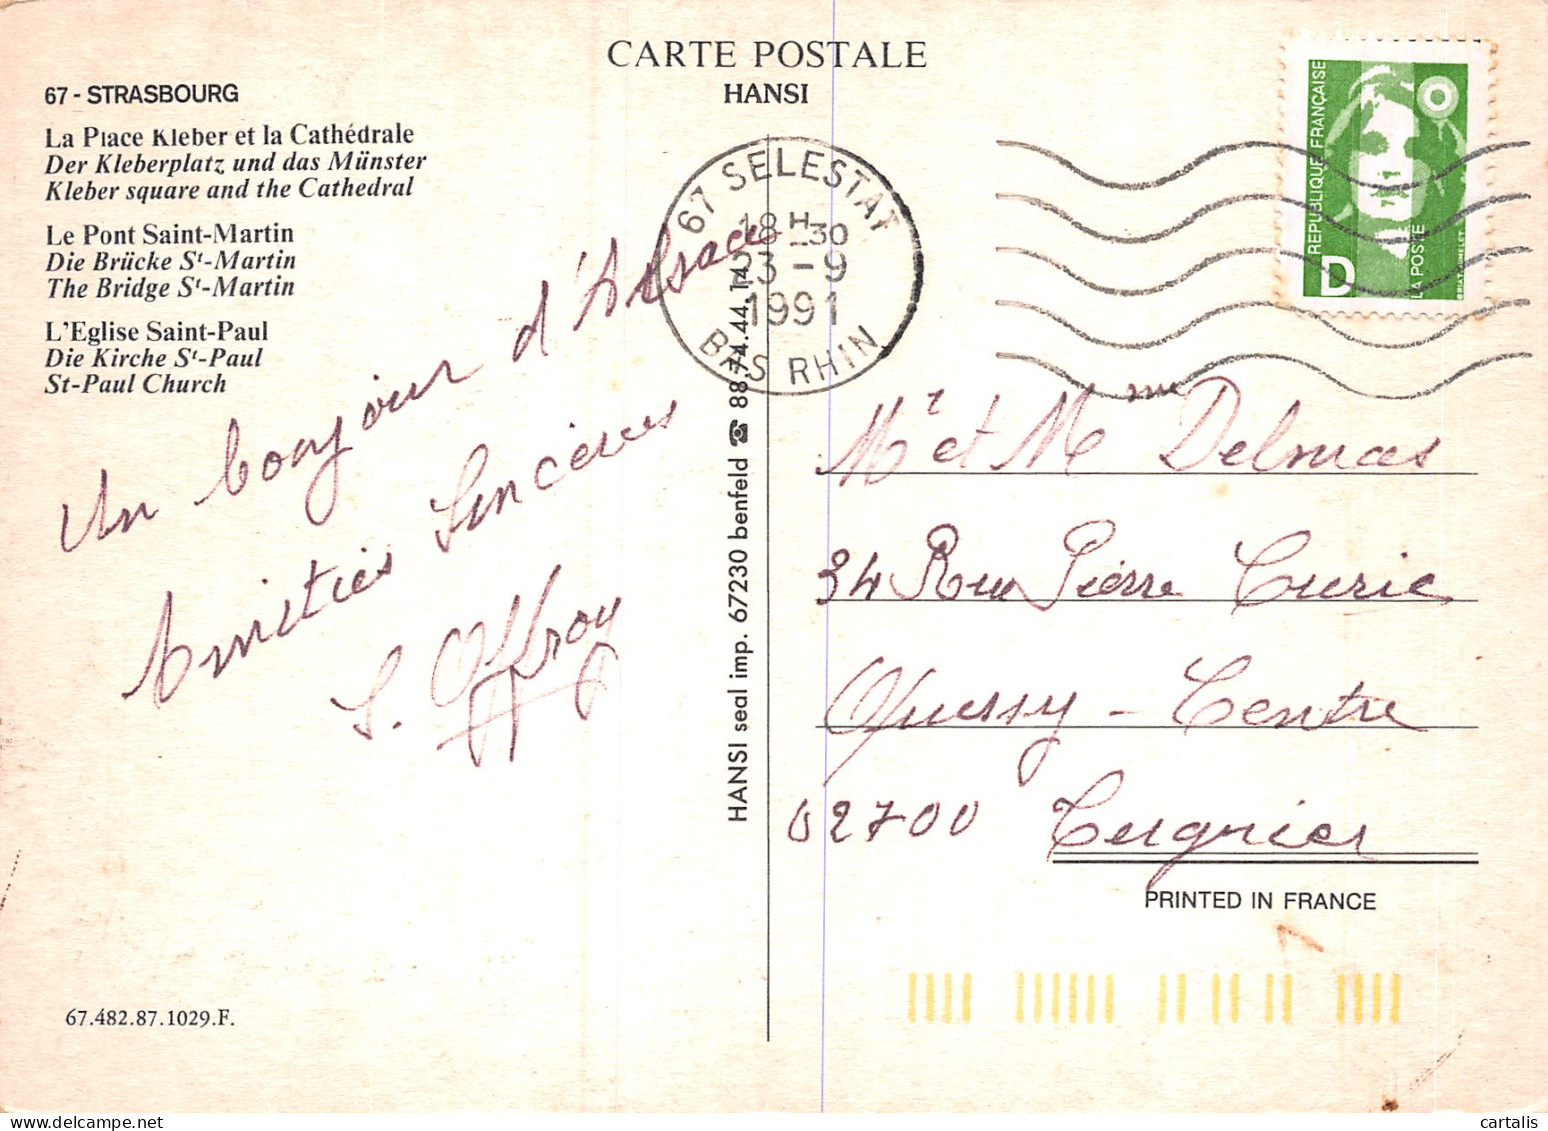 CARTE POSTALE
HANSI
67 - STRASBOURG
La Place Kleber et la Cathédrale
Der Kleberplatz und das Münster
Kleber square and the Cathedral
Le Pont Saint-Martin
Die Brücke St-Martin
The Bridge St-Martin
L'Eglise Saint-Paul
Die Kirche St-Paul
St-Paul Church
Un bonjour d'Alsace
Amitiés Sincères
S. Offroy
67.482.87.1029.F.
HANSI seal imp. 67230 benfeld ☎ 88.74.44.14
67 SELESTAT
18H-30
23-9
1991
BAS RHIN
REPUBLIQUE FRANÇAISE
D
LA POSTE
Mr et Mme Delmas
34 Rue Pierre Curie
Quessy - Centre
02700 Tergnier
PRINTED IN FRANCE
cartalis.com